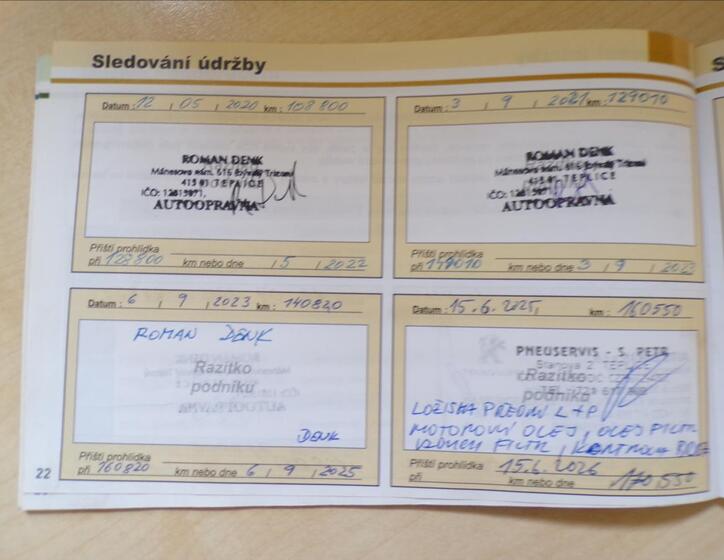 Sledování údržby
Datum : 12 / 05 / 2020 km : 108 800
ROMAN DENK
Mánesovo nám. 616
415 01 TEPLICE
IČO:
AUTOOPRAVNA
Příští prohlídka
při 128800 km nebo dne / 5 / 2022
Datum : 3 / 9 / 2021 km : 129010
ROMAN DENK
Mánesovo nám. 616
415 01 TEPLICE
IČO:
AUTOOPRAVNA
Příští prohlídka
při 149010 km nebo dne 3 / 9 / 2023
Datum : 6 / 9 / 2023 km : 140820
ROMAN DENK
Razítko
podniku
DENK
Příští prohlídka
při 160820 km nebo dne 6 / 9 / 2025
Datum : 15.6.2025 km : 160550
PNEUSERVIS - S. PETR
Razítko
podniku
LOŽISKA PŘEDNÍ L+P
MOTOROVÝ OLEJ, OLEJ FILTR
FILTR, KONTROLA
Příští prohlídka
při 15.6.2026 km nebo dne 170550
22